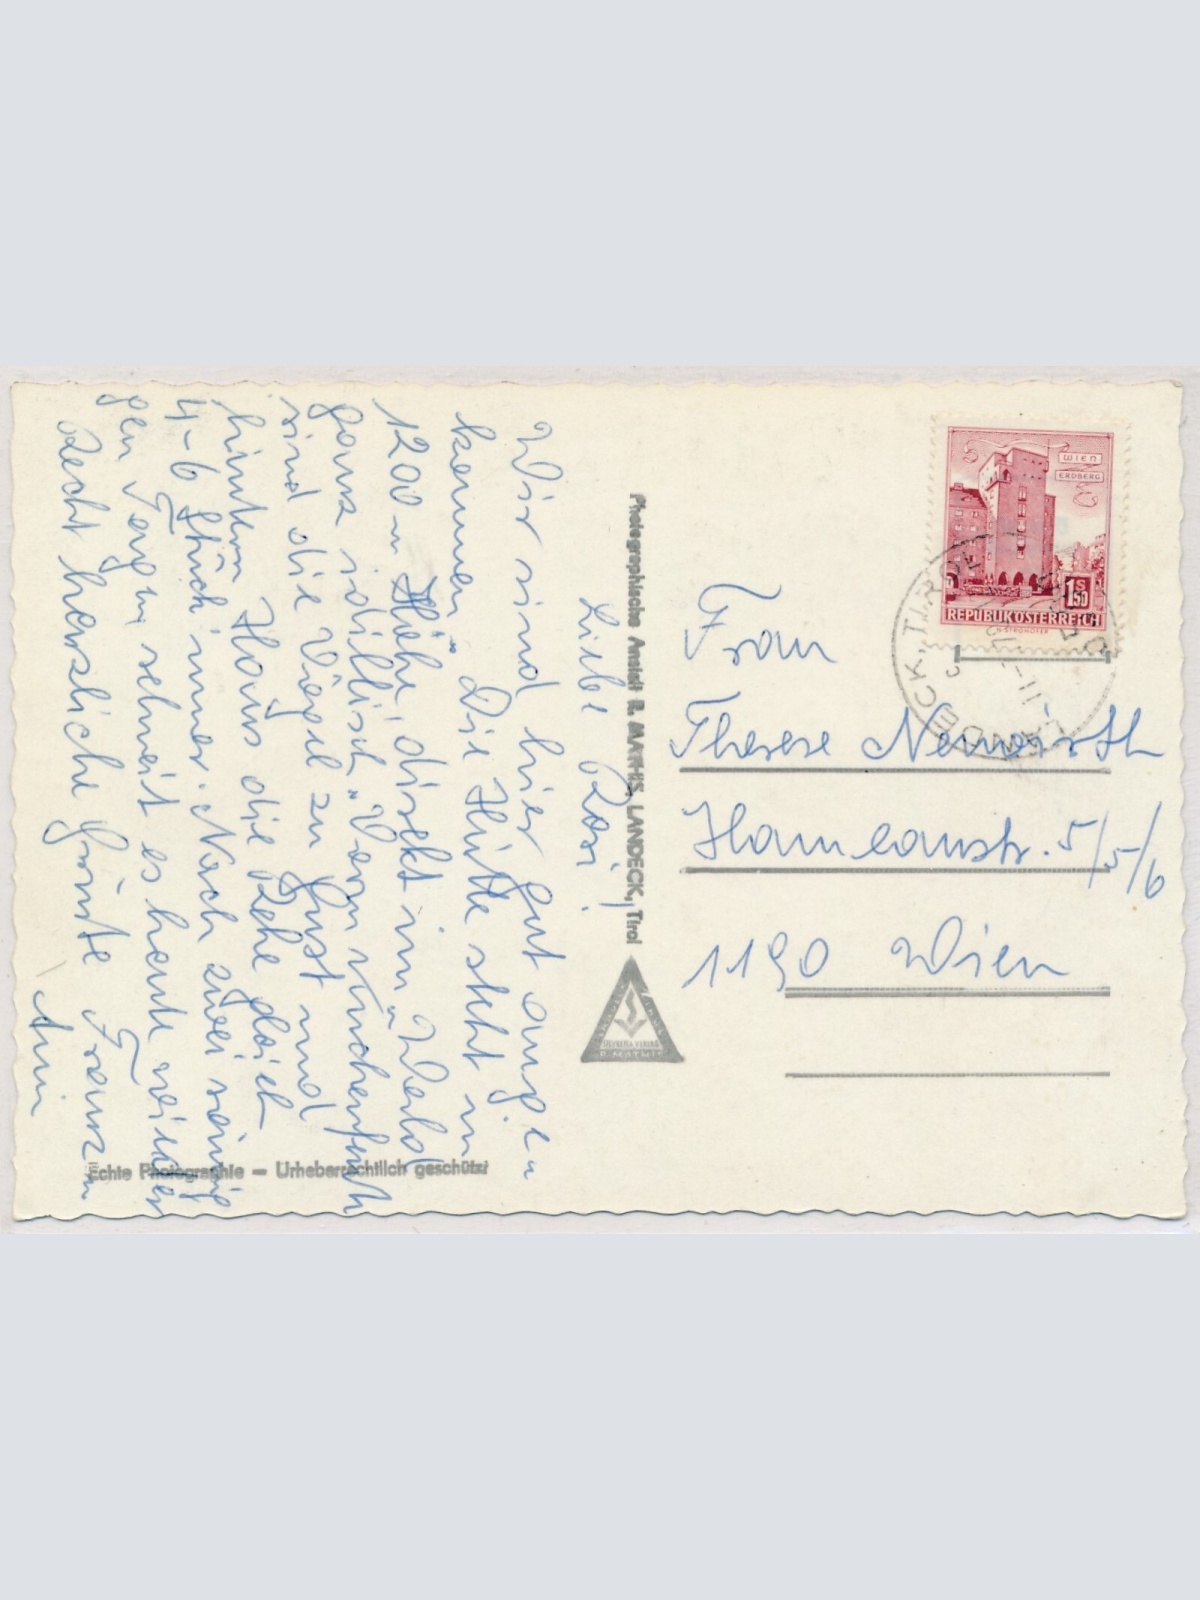 Liebe Rosi!
Wir sind hier gut angekommen. Die Hütte steht in
1200 m Höhe, direkt im Wald
ganz idillisch. Vom Küchenfenster
sind die Vögel zu Gast und
hinterm Haus die Rehe gleich
4-6 Stück immer. Nach zwei sonnigen Tagen schneit es heute wieder
Recht herzliche Grüsse Franz
Anni
Photographische Anstalt R. MATHIS, LANDECK, Tirol
R. MATHIS
Echte Photographie – Urheberrechtlich geschützt
WIEN
ERDBERG
1S
50
REPUBLIK ÖSTERREICH
LANDECK, TIROL
Frau
Therese Neuwirth
Hameaustr. 5/5/6
1190 Wien